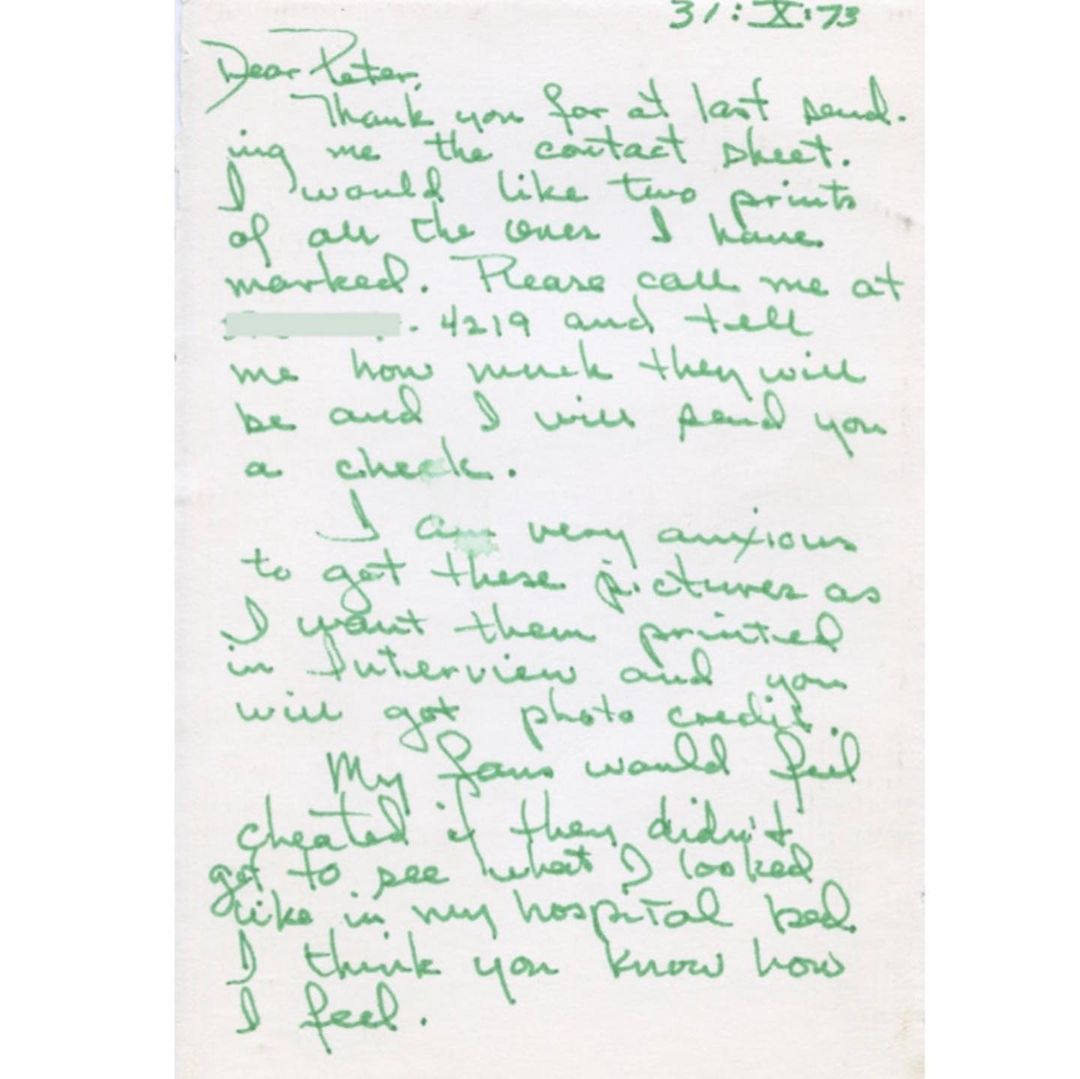 31:X:73
Dear Peter,
Thank you for at last send-
ing me the contact sheet.
I would like two prints
of all the ones I have
marked. Please call me at
- 4219 and tell
me how much they will
be and I will send you
a check.
I am very anxious
to get these pictures as
I want them printed
in Interview and you
will get photo credit.
My fans would feel
cheated if they didn't
get to see what I looked
like in my hospital bed.
I think you know how
I feel.